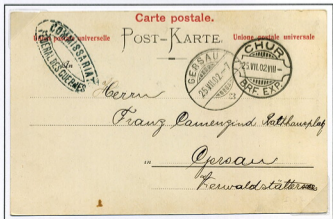 Carte postale.
Union postale universelle
POST-KARTE.
Union postale universelle
COMMISSARIAT
CHUR
25.VII.02.VIII
BRF. EXP.
GERSAU
25.VII.02
Herrn
Franz Camenzind Rathhausplatz
in Gersau
Vierwaldstätter
1